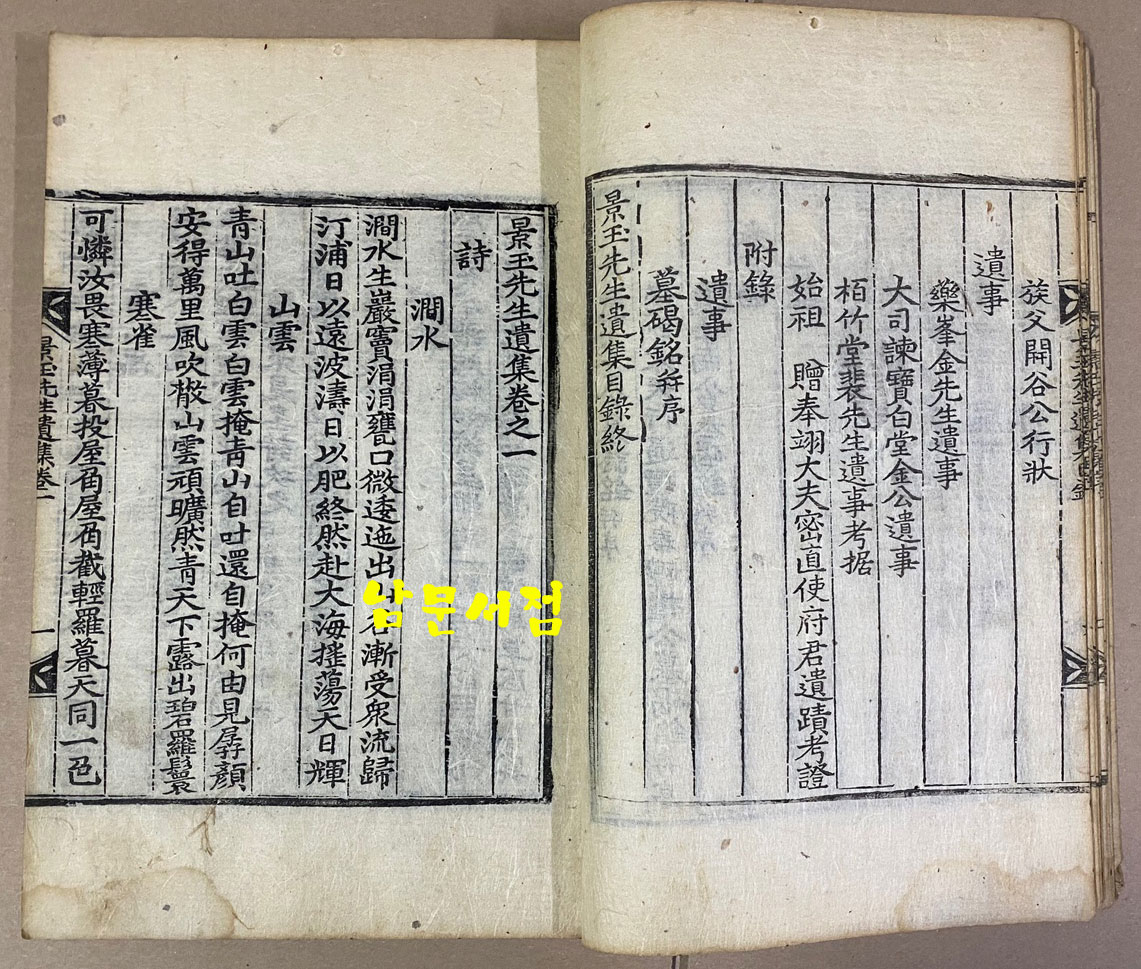 族父開谷公行狀
遺事
藥峯金先生遺事
大司諫寶白堂金公遺事
栢竹堂裴先生遺事考据
始祖 贈奉翊大夫密直使府君遺蹟考證
附錄
遺事
墓碣銘幷序
景玉先生遺集目錄終
景玉先生遺集卷之一
詩
澗水
澗水生巖竇涓涓甕口微逶迤出山谷漸受衆流歸
汀浦日以遠波濤日以肥終然赴大海搖蕩天日輝
山雲
靑山吐白雲白雲掩靑山自吐還自掩何由見孱顏
安得萬里風吹散山雲頑曠然靑天下露出碧羅鬟
寒雀
可憐汝畏寒薄暮投屋角屋角載輕羅暮天同一色
景玉先生遺集卷一
一
남문서점